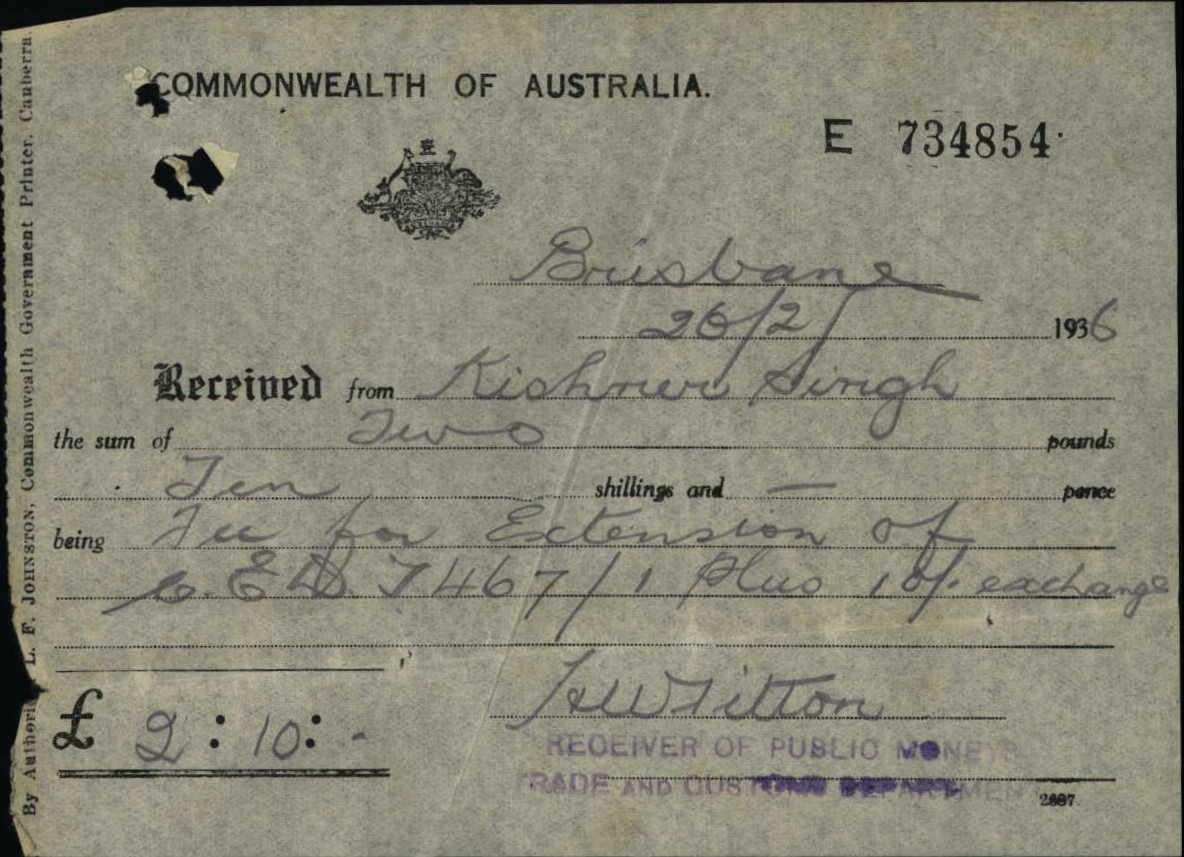 COMMONWEALTH OF AUSTRALIA.
E 734854
Brisbane
26/2/ 1936
Received from Kishner Singh
the sum of Two pounds
Ten shillings and — pence
being Fee for Extension of
C.E.D.T 467/1 Plus 10/- exchange
£ 2 : 10 : -
HW Titton
RECEIVER OF PUBLIC MONEYS
TRADE AND CUSTOMS DEPARTMENT
2887.
By Authority L. F. JOHNSTON, Commonwealth Government Printer. Canberra.